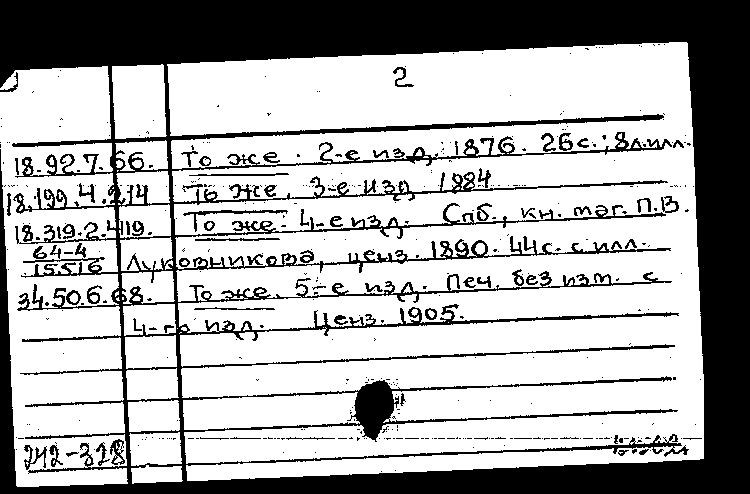 2
18.92.7.66. То же. 2-е изд. 1876. 26 с.; 8 л. илл.
18.199.4.214 То же. 3-е изд 1884
18.319.2.419. То же. 4-е изд. Спб., кн. маг. П.В.
64-4/15516 Луковникова, ценз. 1890. 44 с. с илл.
34.50.6.68. То же. 5-е изд. Печ. без изм. с
4-го изд. Ценз. 1905.
242-328